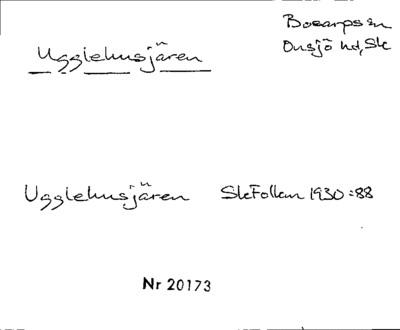 Bosarps sn
Onsjö hd, Sk
Ugglehusjären
Ugglehusjären SkFolkm 1930:88
Nr 20173